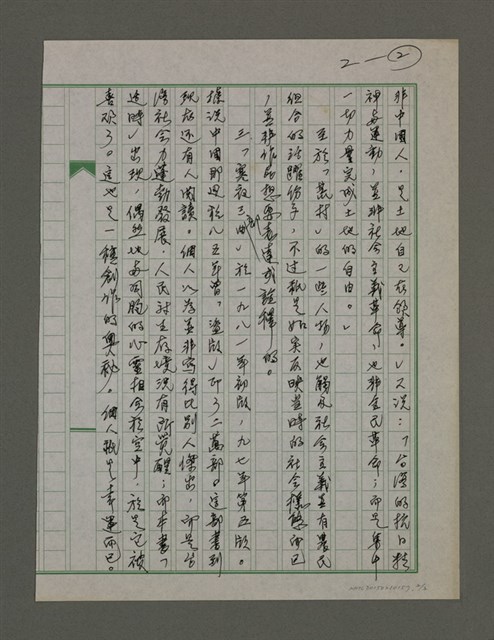 2—②
非中國人,是土地自己在領導。」又說:「台灣的抗日精
神與運動,並非社會主義革命,也非全民革命;而是集中
一切力量完成土地的自由。」
至於「荒村」的一些人物,也觸及社會主義並有農民
組合的活躍份子,不過祇是如實反映當時的社會樣態而已
,並非作者想要表達或詮釋的。
三、「寒夜三部曲」於一九八一年初版,九七年第五版。
據況中國那邊於八五年曾「盜版」印了二萬部。這部書到
現在還有人閱讀。個人以為並非寫得比別人傑出,而是台
灣社會力蓬勃發展,人民對生存境況有所覺醒;而本書「
適時」出現,偶然地與同胞的心靈相會於空中,於是它被
喜歡了。這也是一種創作的奧秘。個人祇是幸運而已。